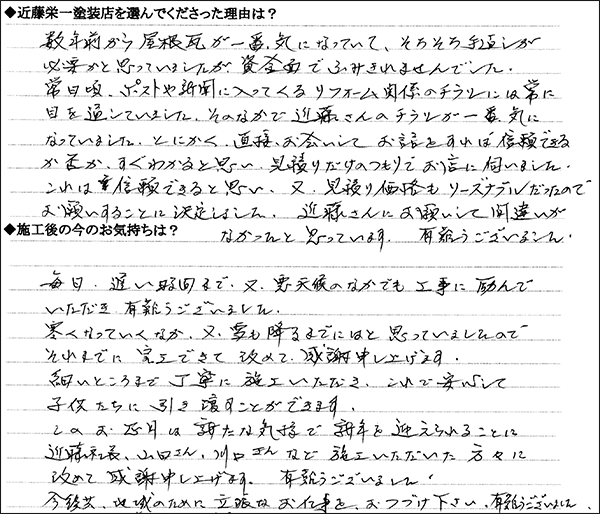 ◆近藤栄一塗装店を選んでくださった理由は？
数年前から屋根瓦が一番気になっていて、そろそろ手直しが
必要かと思っていましたが、資金面でふみきれませんでした。
常日頃、ポストや新聞に入ってくるリフォーム関係のチラシには常に
目を通していました。そのなかで近藤さんのチラシが一番気に
なっていました。とにかく、直接、お会いして お話をすれば信頼できる
か否か、すぐわかると思い、見積りだけのつもりでお話に伺いました。
これは信頼できると思い、又、見積り価格もリーズナブルだったので
お願いすることに決定しました。 近藤さんにお願いして間違いが
◆施工後の今のお気持ちは？
なかったと思っています。 有難うございました。
毎日、遅い時間まで、又、悪天候のなかでも 工事に励んで
いただき 有難うございました。
寒くなっていくなか、又、雪も降るまでにはと思っていましたので
それまでに完工できて 改めて、感謝申し上げます。
細いところまで 丁寧に 施工いただき、これで安心して
子供たちに引き渡すことができます。
このお正月は新たな気持で 新年を迎えられることに
近藤社長、山田さん、川口さんなど 施工いただいた 方々に
改めて 感謝申し上げます。 有難うございました。
今後共、地域のために 立派なお仕事を、おつづけ下さい。有難うございました。